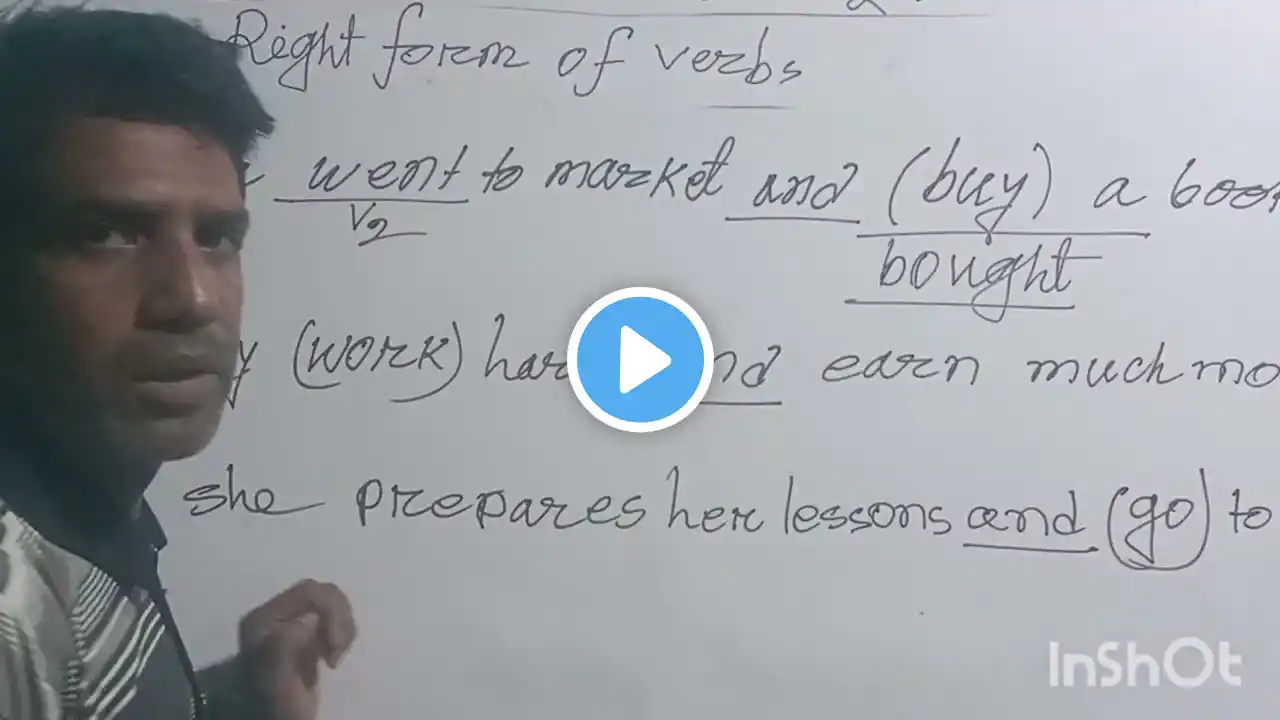 Right form of verbs
went to market and (buy) a
V2
bought
(work) and earn much
she prepares her lessons and (go) to
InShOt